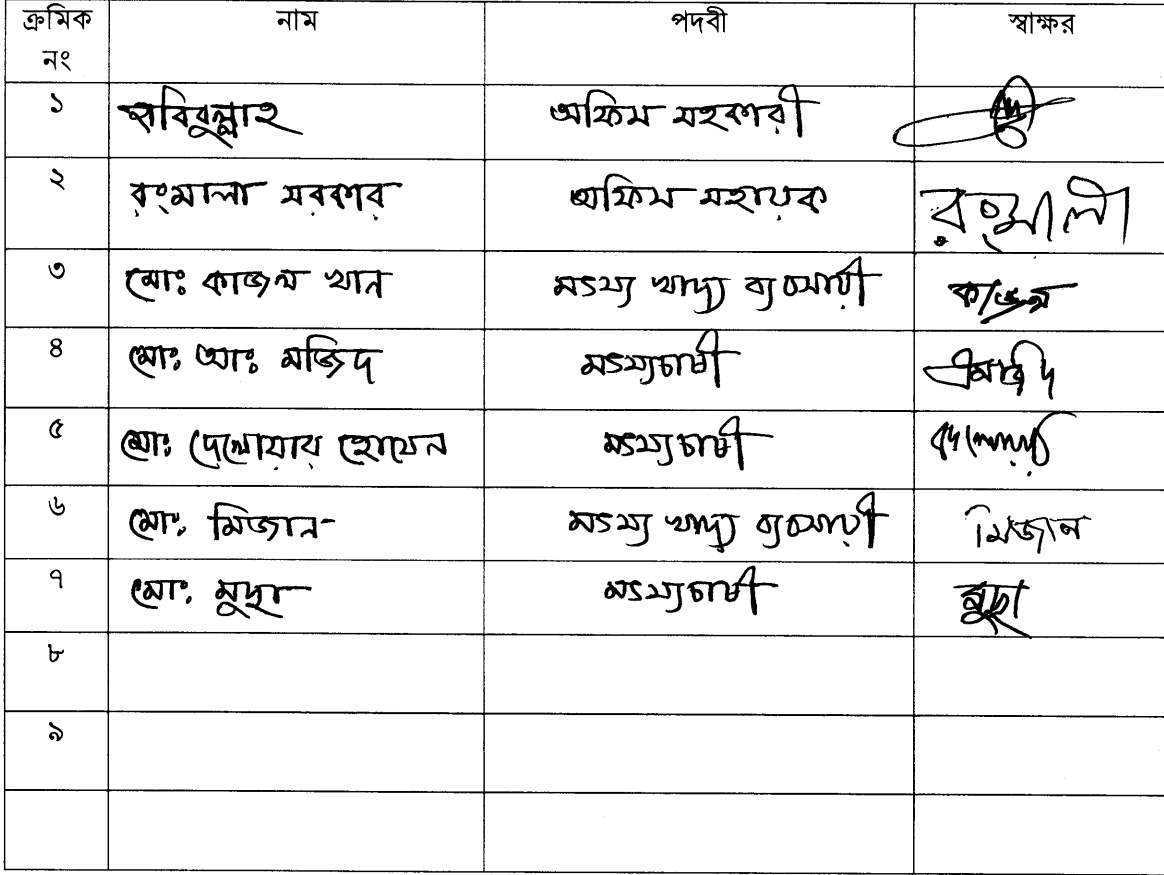 ক্রমিক নাম পদবী স্বাক্ষর
নং
১ হাবিবুল্লাহ অফিস সহকারী
২ রংমালা সরকার অফিস সহায়ক রংমালা
৩ মোঃ কাজল খান মৎস্য খাদ্য ব্যবসায়ী কাজল
৪ মোঃ আঃ মজিদ মৎস্যচাষী
৫ মোঃ দেলোয়ার হোসেন মৎস্যচাষী
৬ মোঃ মিজান মৎস্য খাদ্য ব্যবসায়ী মিজান
৭ মোঃ মুছা মৎস্যচাষী মুছা
৮
৯